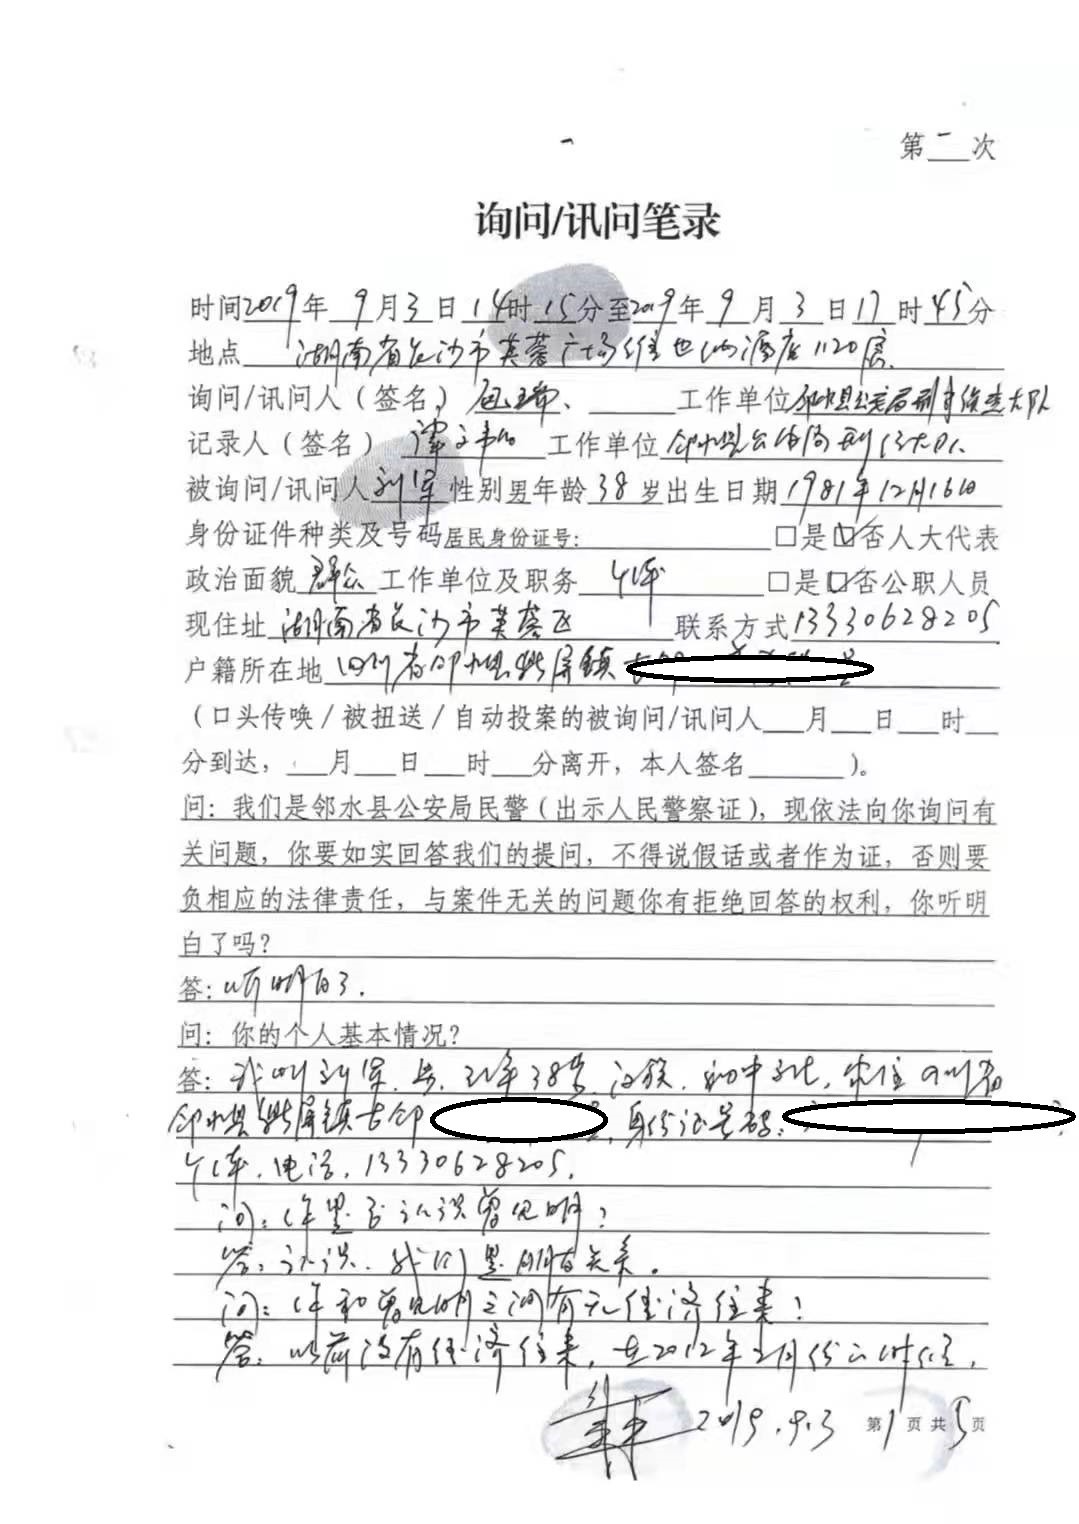 第一次
询问/讯问笔录
时间2019年9月3日14时15分至2019年9月3日17时45分
地点 湖南省长沙市芙蓉广场维也纳酒店1120房
询问/讯问人(签名) 工作单位邻水县公安局刑事侦查大队
记录人(签名) 谭 工作单位 邻水县公安局刑侦大队
被询问/讯问人 刘军 性别男年龄38岁出生日期1981年12月16日
身份证件种类及号码居民身份证号: □是☑否人大代表
政治面貌 群众 工作单位及职务 个体 □是☑否公职人员
现住址 湖南省长沙市芙蓉区 联系方式13330628205
户籍所在地 四川省邻水县 屏镇
(口头传唤/被扭送/自动投案的被询问/讯问人 月 日 时
分到达, 月 日 时 分离开,本人签名 )。
问:我们是邻水县公安局民警(出示人民警察证),现依法向你询问有
关问题,你要如实回答我们的提问,不得说假话或者作为证,否则要
负相应的法律责任,与案件无关的问题你有拒绝回答的权利,你听明
白了吗?
答:听明白了.
问:你的个人基本情况?
答:我叫刘军,男,现年38岁,汉族,初中文化,家住四川省
邻水县 屏镇 ,身份证号码:
个体,电话,13330628205.
问:你是否认识曾见明?
答:认识,我们是朋友关系。
问:你和曾见明之间有无经济往来?
答:以前没有经济往来,在2012年2月份的时候,
2019.9.3 第1页共5页